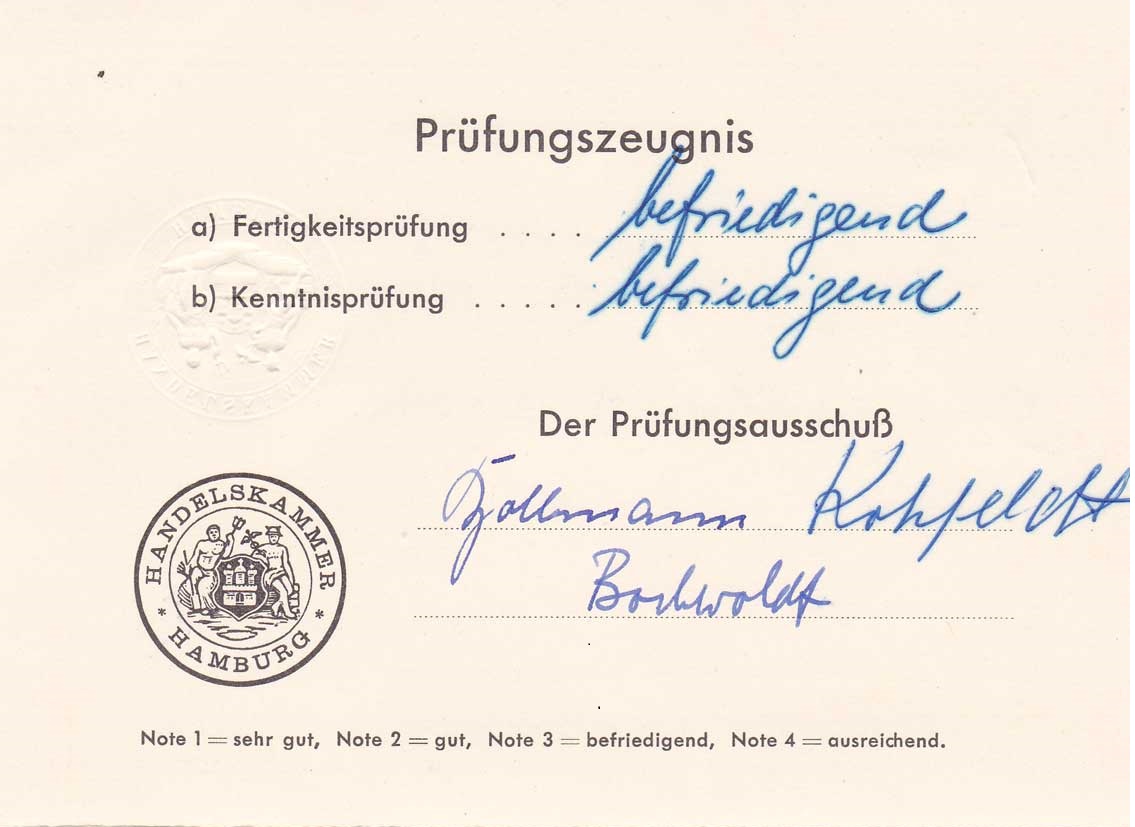 Prüfungszeugnis
a) Fertigkeitsprüfung . . . . befriedigend
b) Kenntnisprüfung . . . . . befriedigend
Der Prüfungsausschuß
Kohfeldt
HANDELSKAMMER
* HAMBURG *
Note 1 = sehr gut, Note 2 = gut, Note 3 = befriedigend, Note 4 = ausreichend.